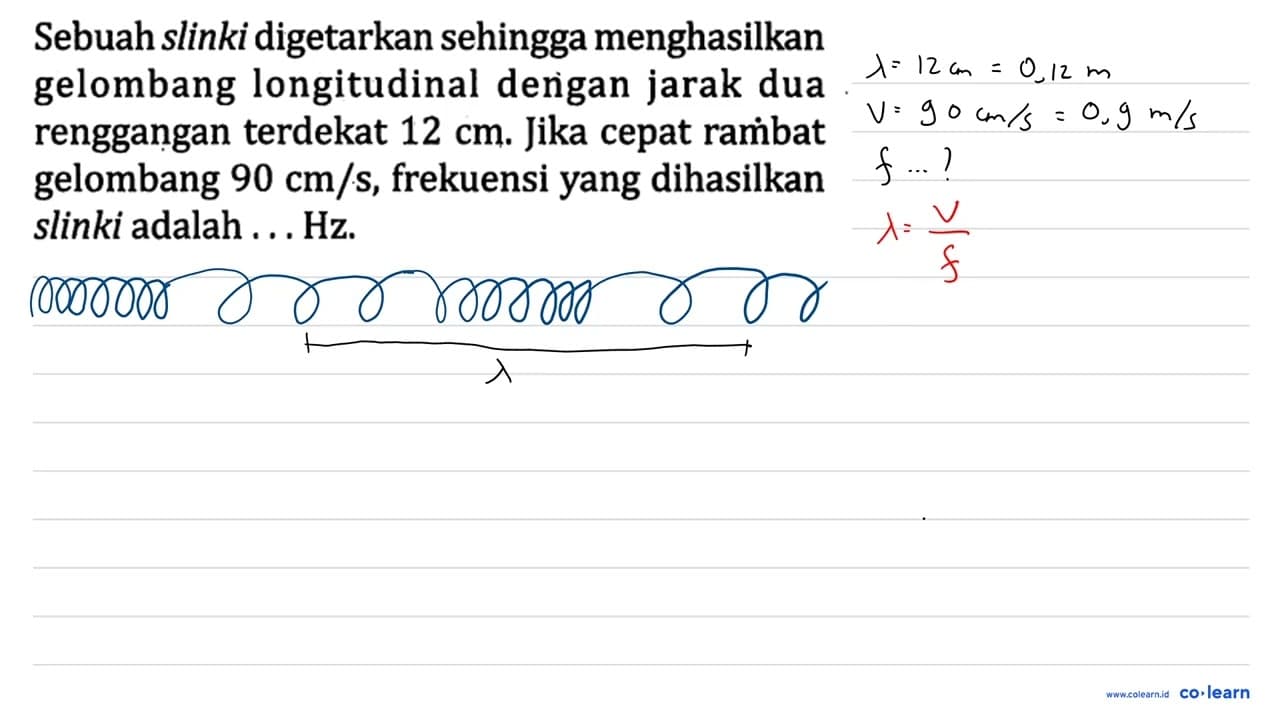 Sebuah slinki digetarkan sehingga menghasilkan
gelombang longitudinal dengan jarak dua
renggangan terdekat 12 cm. Jika cepat rambat
gelombang 90 cm/s, frekuensi yang dihasilkan
slinki adalah . . . Hz.
λ = 12 cm = 0,12 m
V = 90 cm/s = 0,9 m/s
f ... ?
λ = V
f
λ
www.colearn.id co·learn